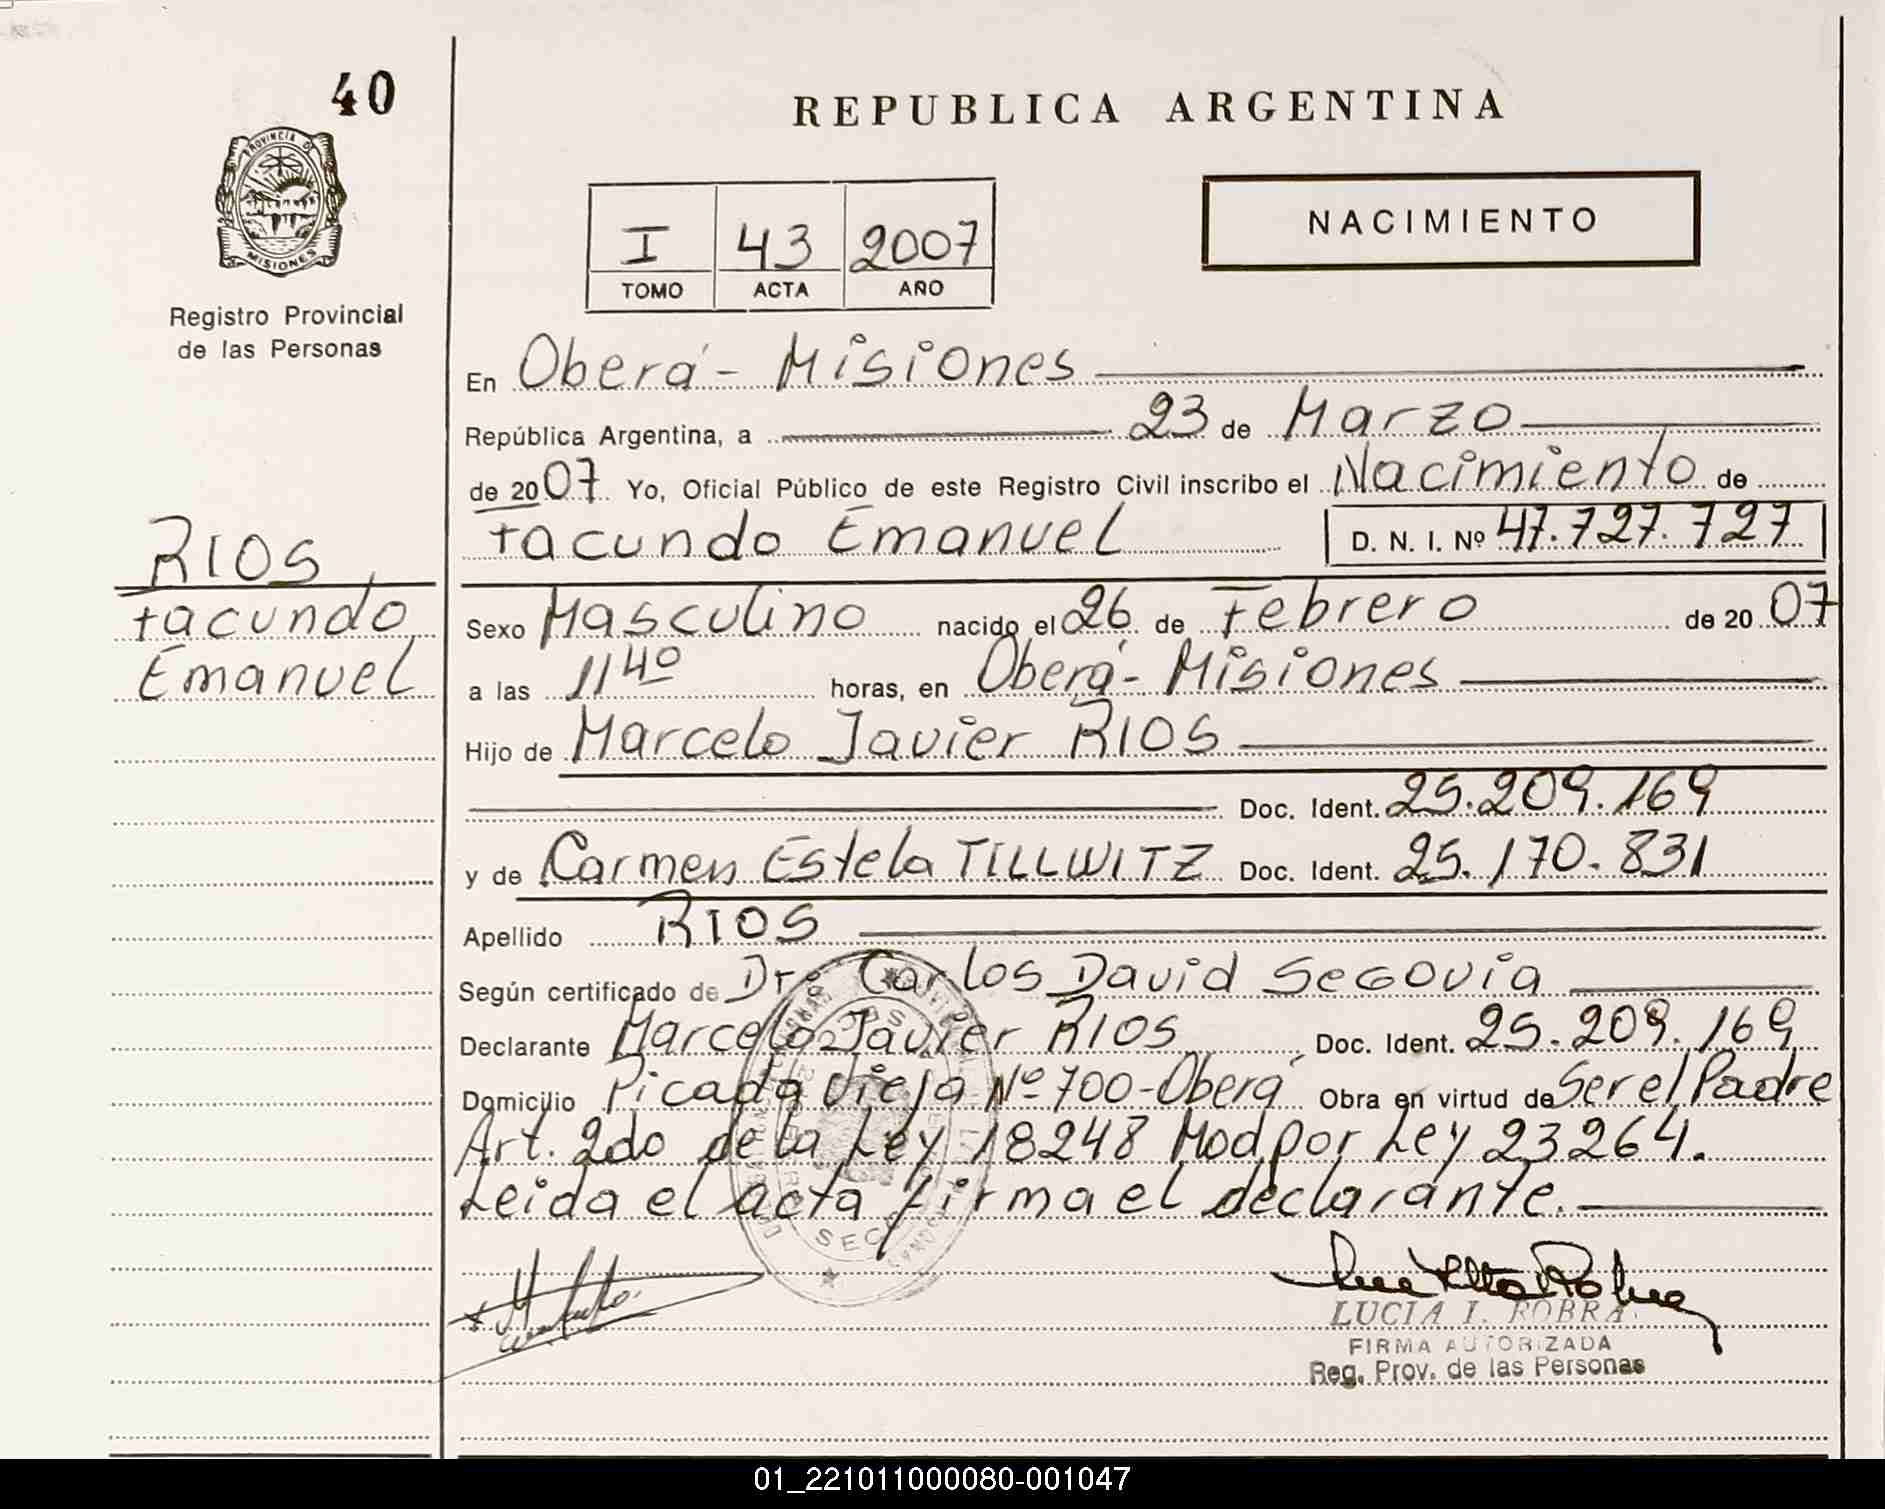 40
PROVINCIA DE
MISIONES
Registro Provincial
de las Personas
REPUBLICA ARGENTINA
NACIMIENTO
I 43 2007
TOMO ACTA AÑO
En Oberá - Misiones
República Argentina, a 23 de Marzo
de 2007 Yo, Oficial Público de este Registro Civil inscribo el Nacimiento de
Facundo Emanuel D. N. I. Nº 47.727.727
RIOS
Facundo
Emanuel
Sexo Masculino nacido el 26 de Febrero de 2007
a las 11 40 horas, en Oberá - Misiones
Hijo de Marcelo Javier RIOS
Doc. Ident. 25.209.169
y de Carmen Estela TILLWITZ Doc. Ident. 25.170.831
Apellido RIOS
Según certificado de Dr. Carlos David Segovia
Declarante Marcelo Javier RIOS Doc. Ident. 25.209.169
Domicilio Picada Vieja Nº 700 - Oberá Obra en virtud de Ser el Padre
Art. 2do de la Ley 18248 Mod por Ley 23264.
Leida el acta firma el declarante.
LUCIA I. ROBRA
FIRMA AUTORIZADA
Reg. Prov. de las Personas
01_221011000080-001047